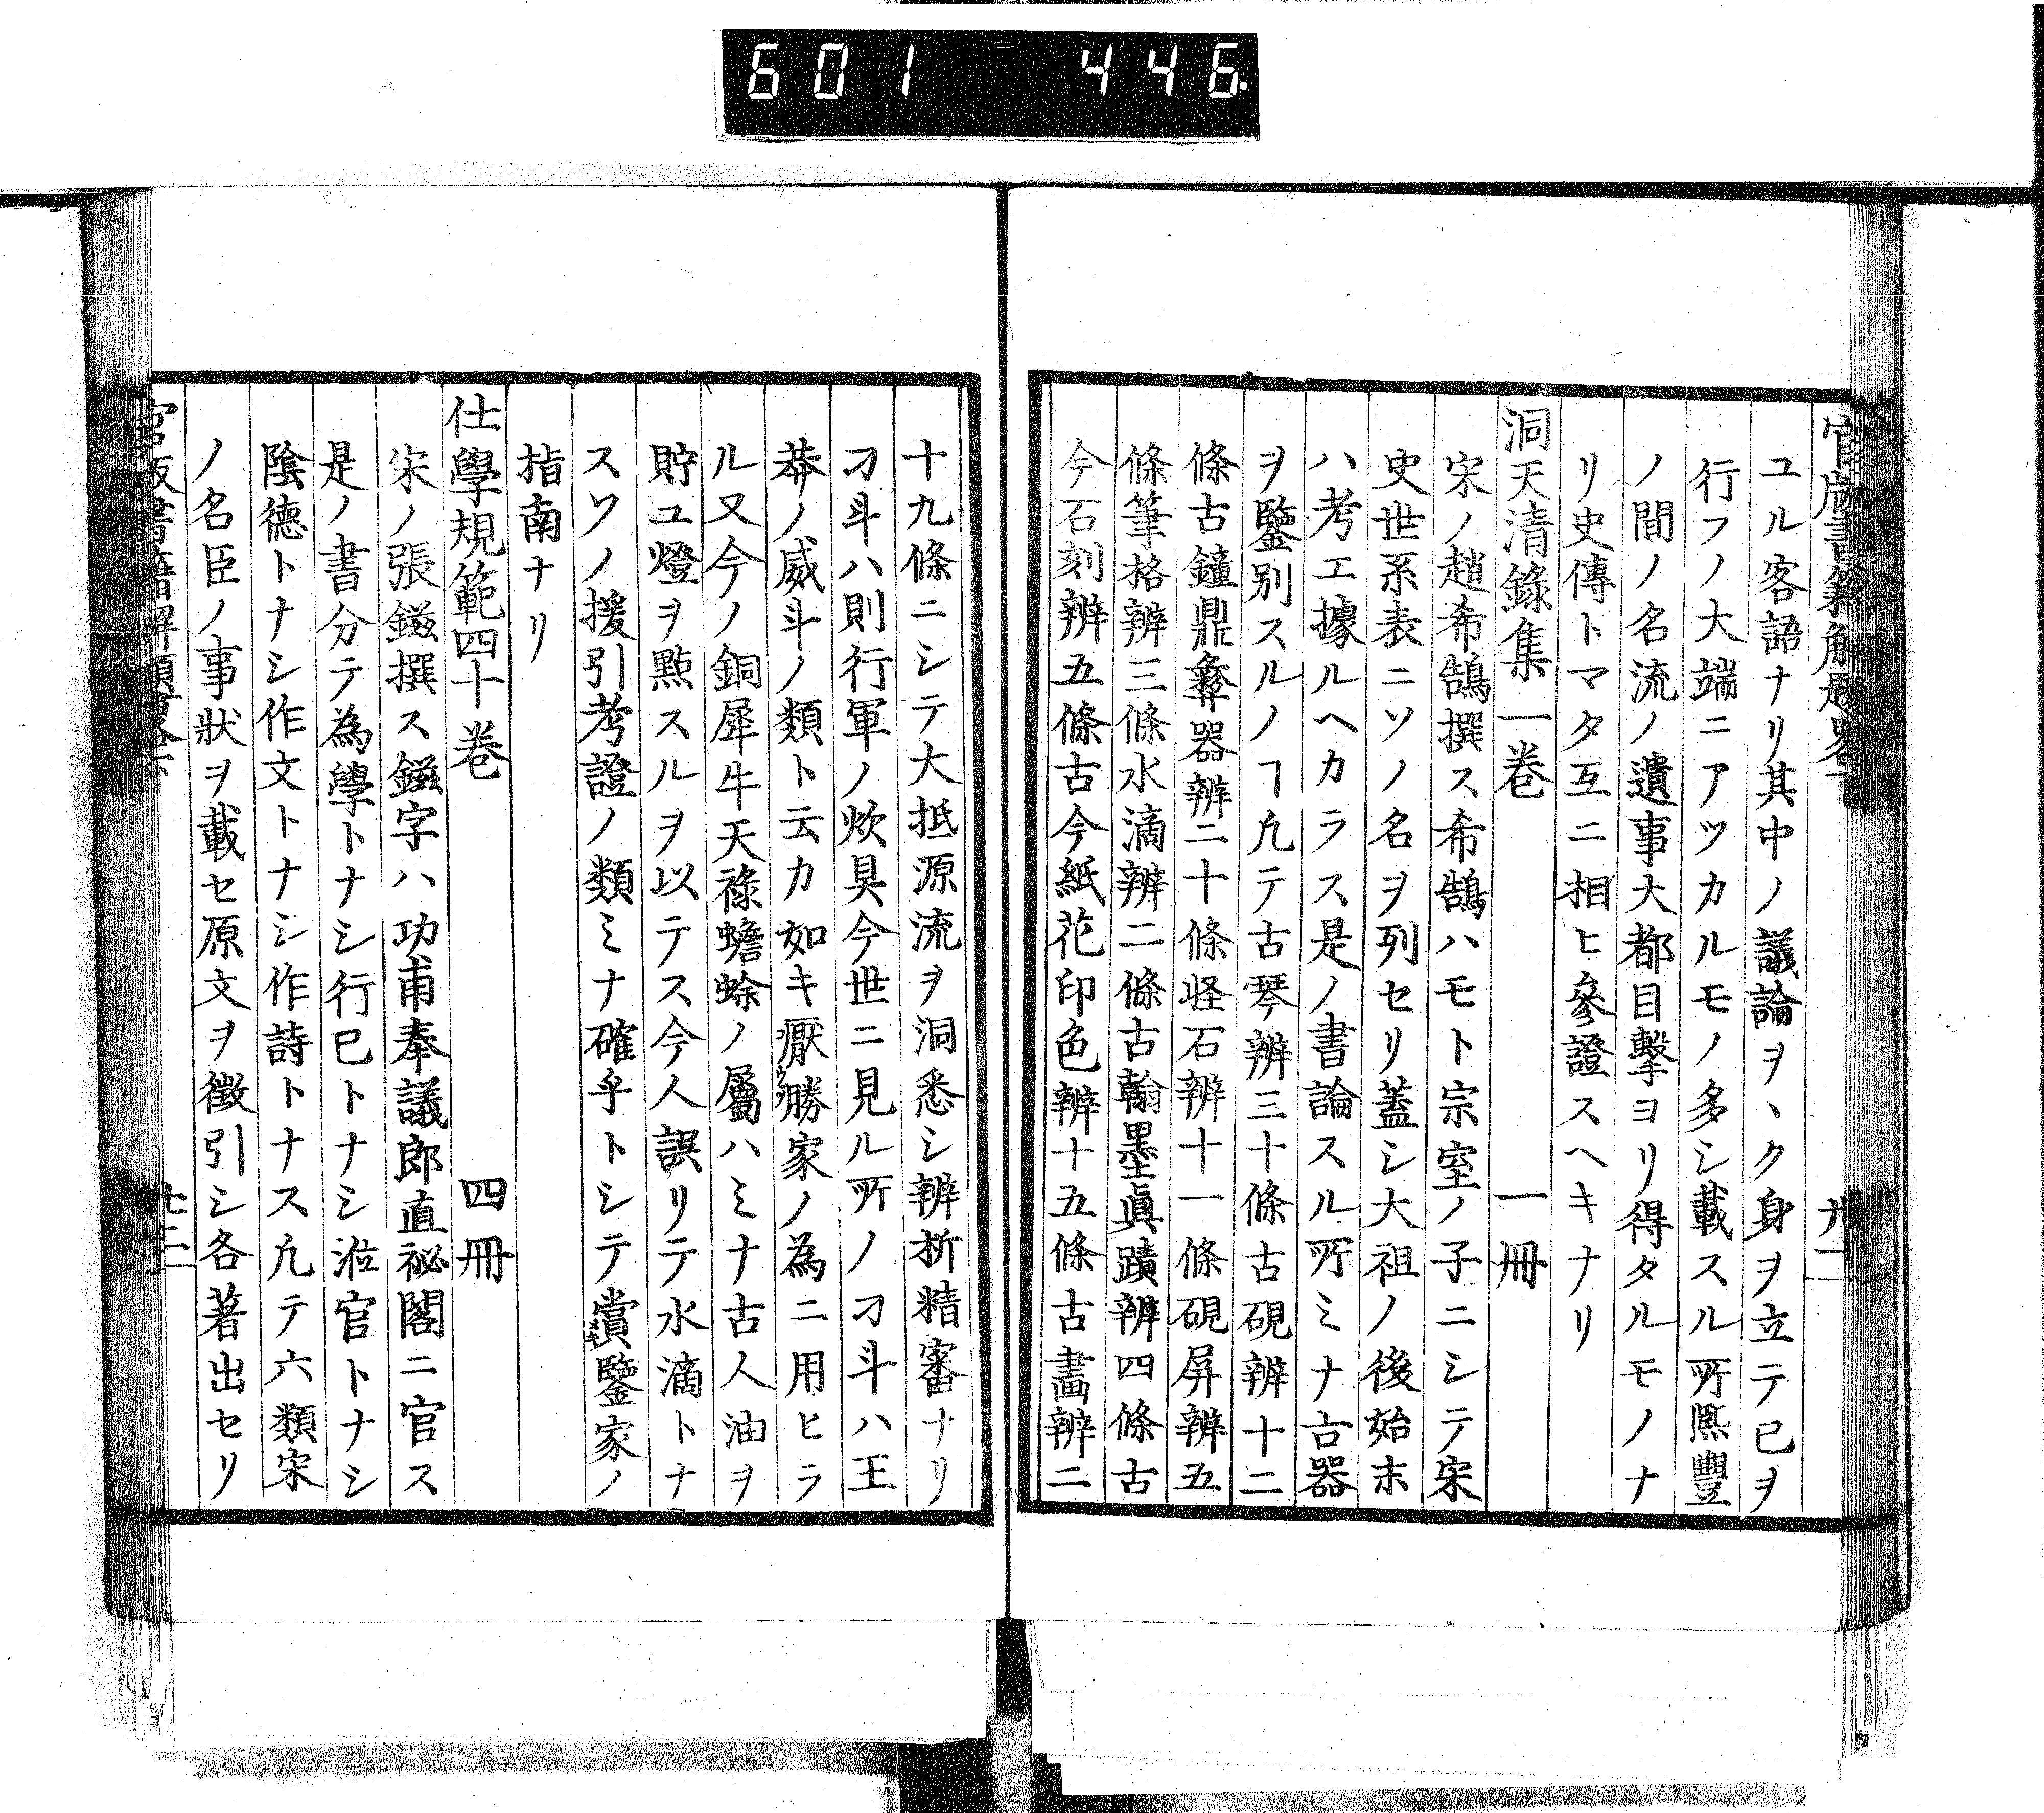 601 446
官版書籍解題畧下
ユル客語ナリ其中ノ議論ヲヽク身ヲ立テ已ヲ
行フノ大端ニアツカルモノ多シ載スル所熈豐
ノ間ノ名流ノ遺事大都目擊ヨリ得タルモノナ
リ史傳トマタ互ニ相ヒ參證スヘキナリ
洞天清錄集一卷 一冊
宋ノ趙希鵠撰ス希鵠ハモト宗室ノ子ニシテ宋
史世系表ニソノ名ヲ列セリ蓋シ大祖ノ後始末
ハ考エ據ルヘカラス是ノ書論スル所ミナ古器
ヲ鑒別スルノヿ凢テ古琴辨三十條古硯辨十二
條古鐘鼎彝器辨二十條怪石辨十一條硯屏辨五
條筆格辨三條水滴辨二條古翰墨眞蹟辨四條古
今石刻辨五條古今紙花印色辨十五條古畵辨二
十九條ニシテ大抵源流ヲ洞悉シ辨析精審ナリ
刁斗ハ則行軍ノ炊具今世ニ見ル所ノ刁斗ハ王
莽ノ威斗ノ類ト云カ如キ厭勝家ノ為ニ用ヒラ
ル又今ノ銅犀牛天祿蟾蜍ノ屬ハミナ古人油ヲ
貯ユ燈ヲ點スルヲ以テス今人誤リテ水滴トナ
スソノ援引考證ノ類ミナ確乎トシテ賞鑒家ノ
指南ナリ
仕學規範四十卷 四冊
宋ノ張鎡撰ス鎡字ハ功甫奉議郎直祕閣ニ官ス
是ノ書分テ為學トナシ行已トナシ涖官トナシ
陰德トナシ作文トナシ作詩トナス凢テ六類宋
ノ名臣ノ事狀ヲ載セ原文ヲ徵引シ各著出セリ
官版書籍解題畧下